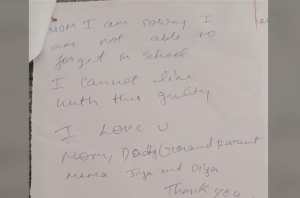 Mom I am sorry I
am not able to
forget in school
I cannot live
with this guilty
I LOVE U
Mom, Dady Grand parent
Mama Jiya and Diya
Thank you